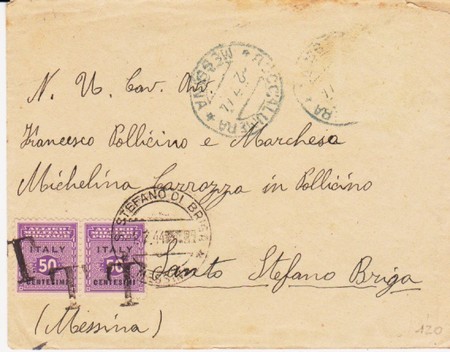 N. U. Cav. Avv.
Francesco Pollicino e Marchesa
Michelina Carrozza in Pollicino
Santo Stefano Briga
(Messina)
ROCCALUMERA * MESSINA *
STEFANO DI BRIGA
MESSINA
ITALY
50
CENTESIMI
ITALY
50
CENTESIMI
T
T
120